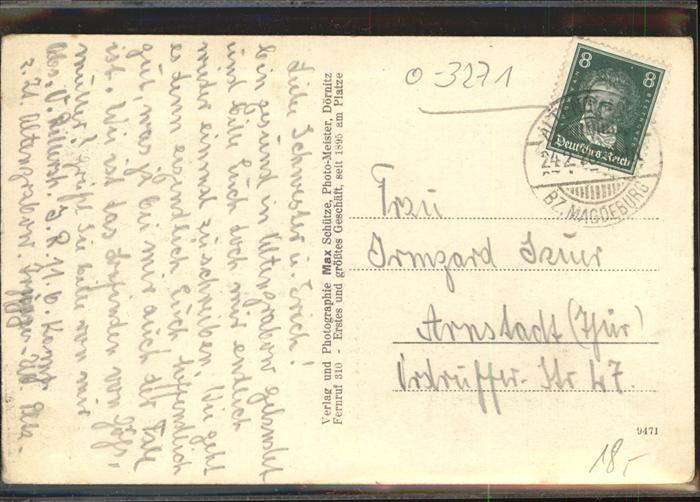 Liebe Schwester u. Erich!
bin gesund in Altengrabow gelandet
und bitte Euch doch mir endlich
wieder einmal zu schreiben. Wie geht
es denn eigentlich Euch hoffentlich
gut, was ja bei mir auch der Fall
ist. Wie ist das Befinden von
mutter? Grüße Sie bitte von mir
z. Zt. Altengrabow
Verlag und Photographie Max Schütze, Photo-Meister, Dörnitz
Fernruf 310 - Erstes und größtes Geschäft, seit 1895 am Platze
0-3271
8 8
Deutsches Reich
24.2.
BZ. MAGDEBURG
Frau
Irmgard
Arnstadt (Thür)
Ordruffer-Str 47.
9471
18,-